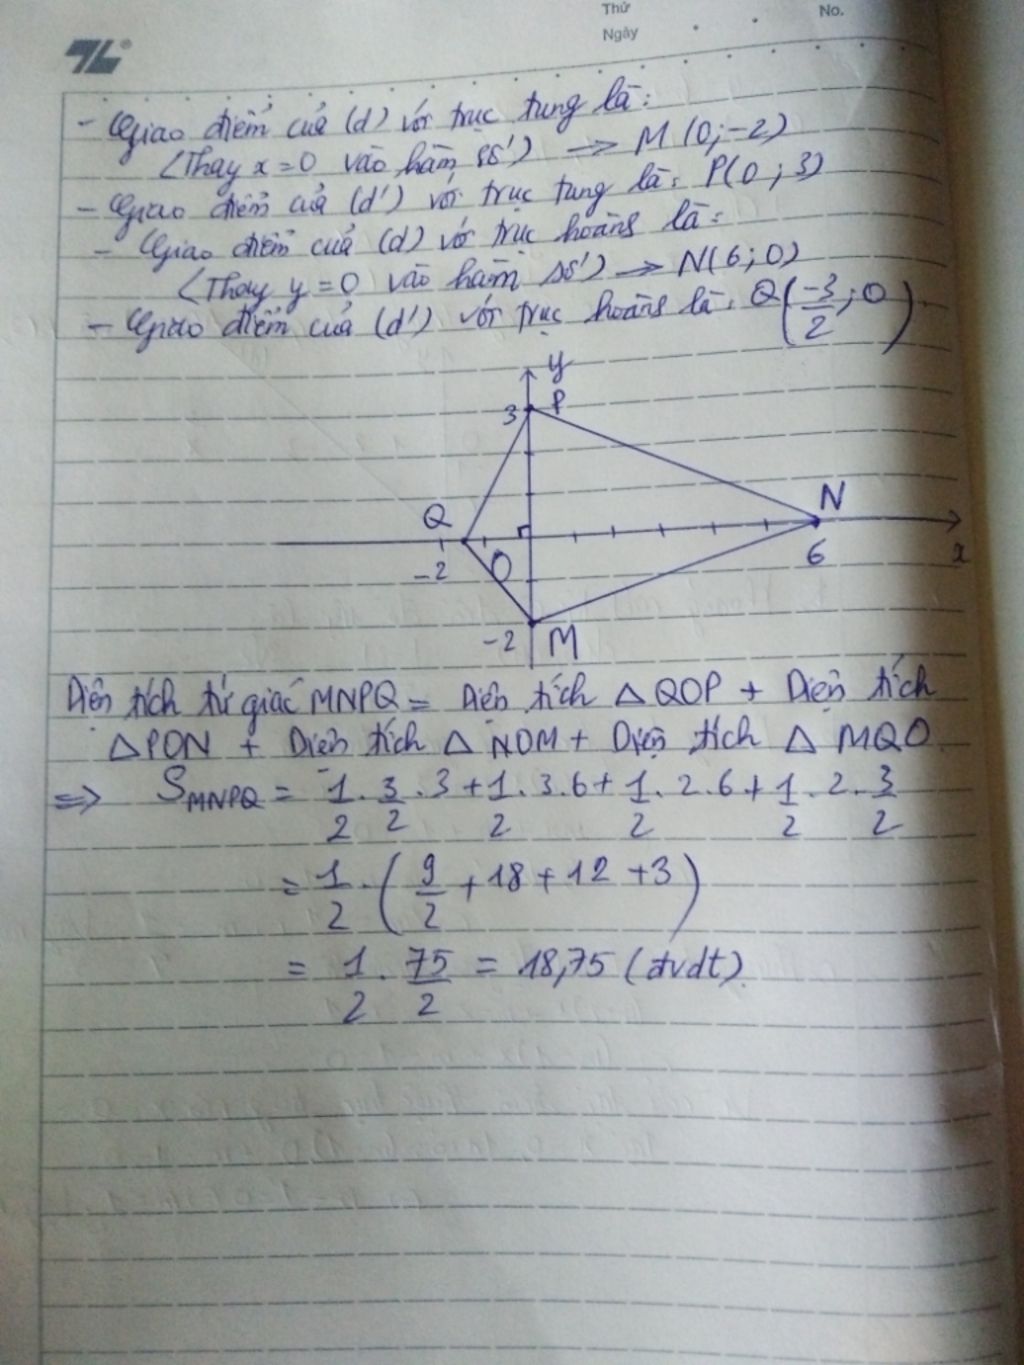 Thứ No.
Ngày
- Giao điểm của (d) với trục tung là:
(Thay x = 0 vào hàm số) → M (0; -2)
- Giao điểm của (d') với trục tung là: P(0 ; 3)
- Giao điểm của (d) với trục hoành là:
(Thay y = 0 vào hàm số) → N(6; 0)
- Giao điểm của (d') với trục hoành là: Q(-3/2; 0)
y
3 P
Q N
-2 O 6 x
-2 M
Diện tích tứ giác MNPQ = Diện tích △ QOP + Diện tích
△PON + Diện tích △ NOM + Diện tích △ MQO
=> S_MNPQ = 1/2 . 3/2 . 3 + 1/2 . 3 . 6 + 1/2 . 2 . 6 + 1/2 . 2 . 3/2
= 1/2 . (9/2 + 18 + 12 + 3)
= 1/2 . 75/2 = 18,75 (đvdt).